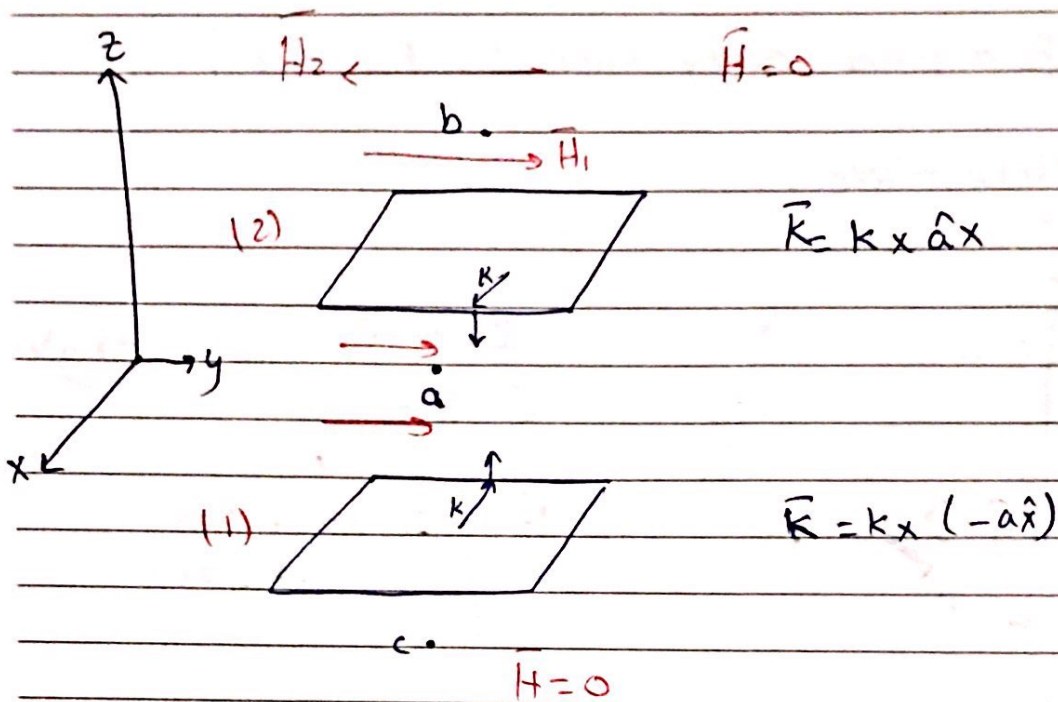 z
H̄₂ H̄ = 0
b
H̄₁
(2) K̄ = K x âx
K
y
a
x
(1) K K̄ = K x (-ax̂)
c
H̄ = 0